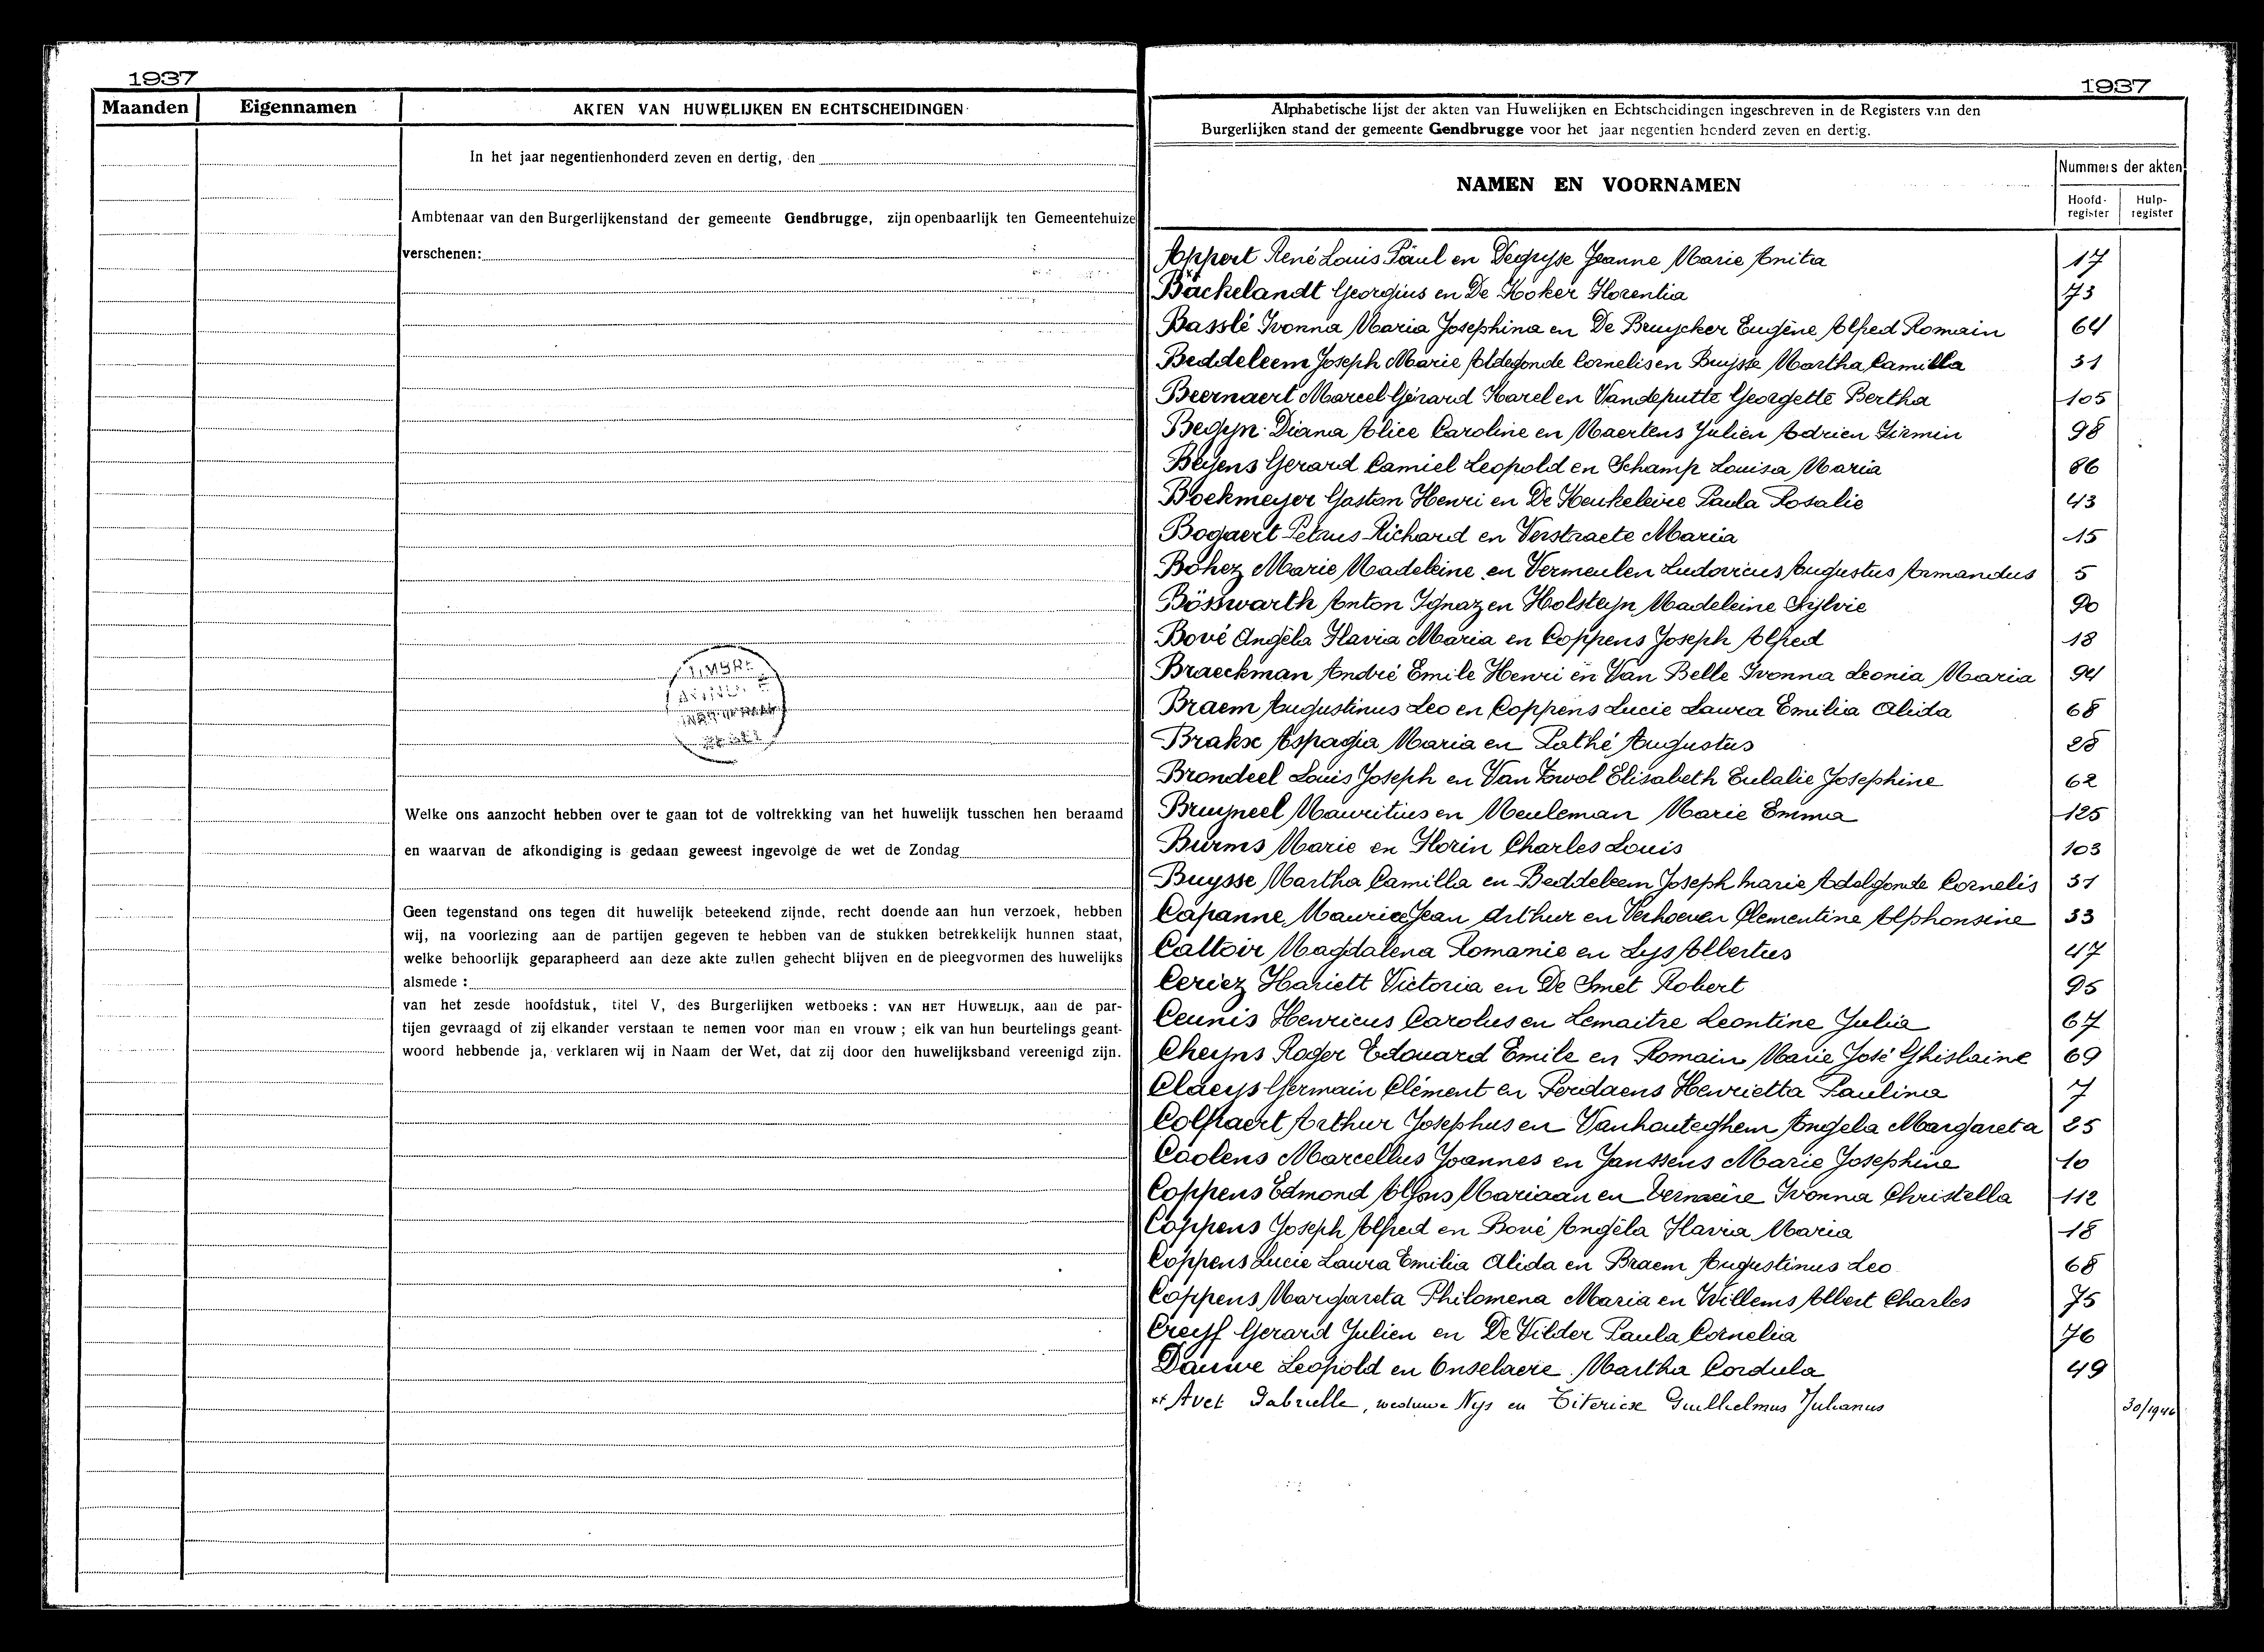 1937
Maanden Eigennamen AKTEN VAN HUWELIJKEN EN ECHTSCHEIDINGEN
In het jaar negentienhonderd zeven en dertig, den
Ambtenaar van den Burgerlijkenstand der gemeente Gendbrugge, zijn openbaarlijk ten Gemeentehuize
verschenen:
Welke ons aanzocht hebben over te gaan tot de voltrekking van het huwelijk tusschen hen beraamd
en waarvan de afkondiging is gedaan geweest ingevolge de wet de Zondag
Geen tegenstand ons tegen dit huwelijk beteekend zijnde, recht doende aan hun verzoek, hebben
wij, na voorlezing aan de partijen gegeven te hebben van de stukken betrekkelijk hunnen staat,
welke behoorlijk geparapheerd aan deze akte zullen gehecht blijven en de pleegvormen des huwelijks
alsmede :
van het zesde hoofdstuk, titel V, des Burgerlijken wetboeks : VAN HET HUWELIJK, aan de par-
tijen gevraagd of zij elkander verstaan te nemen voor man en vrouw ; elk van hun beurtelings geant-
woord hebbende ja, verklaren wij in Naam der Wet, dat zij door den huwelijksband vereenigd zijn.
1937
Alphabetische lijst der akten van Huwelijken en Echtscheidingen ingeschreven in de Registers van den
Burgerlijken stand der gemeente Gendbrugge voor het jaar negentien honderd zeven en dertig.
NAMEN EN VOORNAMEN
Nummers der akten
Hoofd-register Hulp-register
Appert René Louis Paul en Degryse Jeanne Marie Anita 17
Backelandt Georgius en De Koker Florentia 73
Basslé Ivonna Maria Josephina en De Bruycker Eugène Alfred Romain 64
Beddeleem Joseph Marie Aldegonde Cornelis en Buysse Martha Camilla 31
Beernaert Marcel Gérard Karel en Vandeputte Georgette Bertha 105
Begyn Diana Alice Caroline en Maertens Julien Adrien Firmin 98
Beyens Gerard Camiel Leopold en Schamp Louisa Maria 86
Boekmeyer Gaston Henri en De Keukeleire Paula Rosalie 43
Bogaert Petrus Richard en Verstraete Maria 15
Bohez Marie Madeleine en Vermeulen Ludovicus Augustus Armandus 5
Bösswarth Anton Ignaz en Holsteyn Madeleine Sylvie 90
Bové Angèla Flavia Maria en Coppens Joseph Alfred 18
Braeckman André Emile Henri en Van Belle Ivonna Leonia Maria 94
Braem Augustinus Leo en Coppens Lucie Laura Emilia Alida 68
Brakse Aspagia Maria en Pathé Augustus 28
Brondeel Louis Joseph en Van Zwol Elisabeth Eulalie Josephine 62
Bruyneel Mauritius en Meuleman Marie Emma 125
Burms Marie en Florin Charles Louis 103
Buysse Martha Camilla en Beddeleem Joseph Marie Adelgonde Cornelis 31
Capanne Maurice Jean Arthur en Verhoeven Clementine Alphonsine 33
Cattoir Magdalena Romanie en Lys Albertus 47
Ceriez Hariett Victoria en De Smet Robert 95
Ceunis Henricus Carolus en Lemaitre Leontine Julia 67
Cheyns Roger Edouard Emile en Romain Marie José Ghislaine 69
Claeys Germain Clément en Perdaens Henrietta Paulina 7
Colpaert Arthur Josephus en Vanhauteghem Angela Margareta 25
Coolens Marcellus Joannes en Janssens Marie Josephine 10
Coppens Edmond Alfons Mariaan en Vernaeve Ivonna Christella 112
Coppens Joseph Alfred en Bové Angèla Flavia Maria 18
Coppens Lucie Laura Emilia Alida en Braem Augustinus Leo 68
Coppens Margareta Philomena Maria en Willems Albert Charles 75
Creyf Gerard Julien en De Vilder Paula Cornelia 76
Dauwe Leopold en Onselaere Martha Cordula 49
Avet Gabrielle, weduwe Nys en Guilhelmus Julianus 30/1946